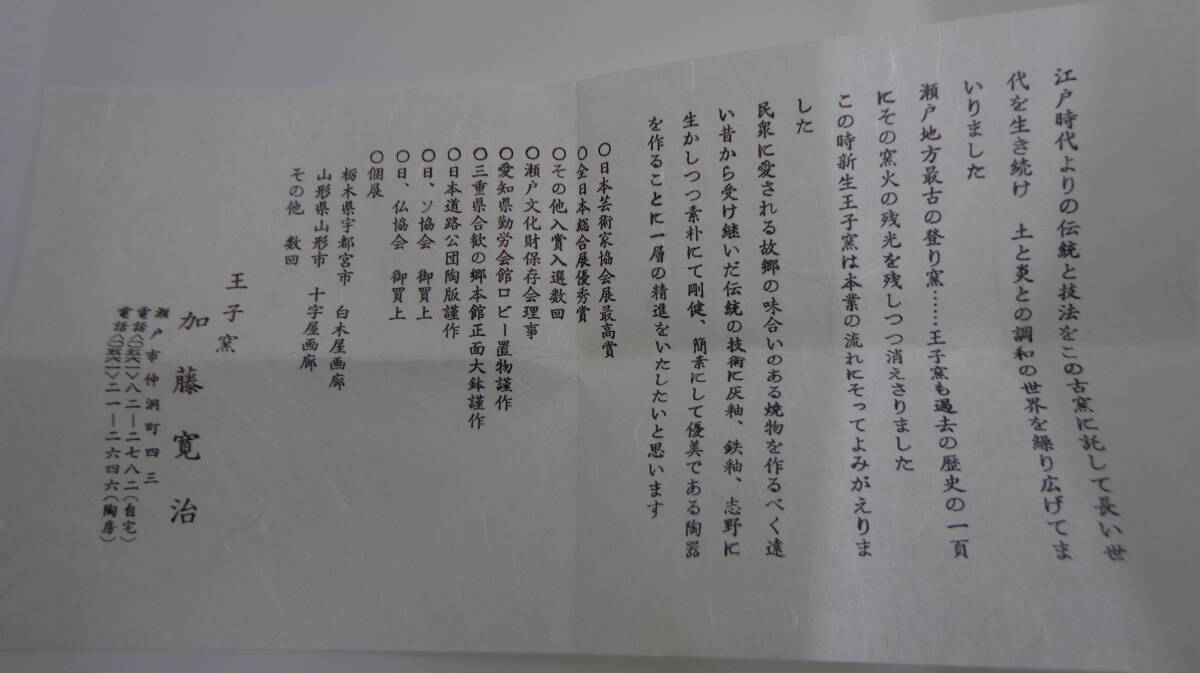 江戸時代よりの伝統と技法をこの古窯に託して長い世
代を生き続け　土と炎との調和の世界を繰り広げてま
いりました
瀬戸地方最古の登り窯……王子窯も過去の歴史の一頁
にその窯火の残光を残しつつ消えさりました
この時新生王子窯は本業の流れにそってよみがえりま
した
民衆に愛される故郷の味合いのある焼物を作るべく遠
い昔から受け継いだ伝統の技術に灰釉、鉄釉、志野に
生かしつつ素朴にて剛健、簡素にして優美である陶器
を作ることに一層の精進をいたしたいと思います
○日本芸術家協会展最高賞
○全日本総合展優秀賞
○その他入賞入選数回
○瀬戸文化財保存会理事
○愛知県勤労会館ロビー置物謹作
○三重県合歓の郷本館正面大鉢謹作
○日本道路公団陶版謹作
○日、ソ協会　御買上
○日、仏協会　御買上
○個展
栃木県宇都宮市　白木屋画廊
山形県山形市　十字屋画廊
その他　数回
王子窯
加藤寛治
瀬戸市仲洞町四三
電話〈〇五六一〉八二―二七八二(自宅)
電話〈〇五六一〉二一―二六四六(陶房)